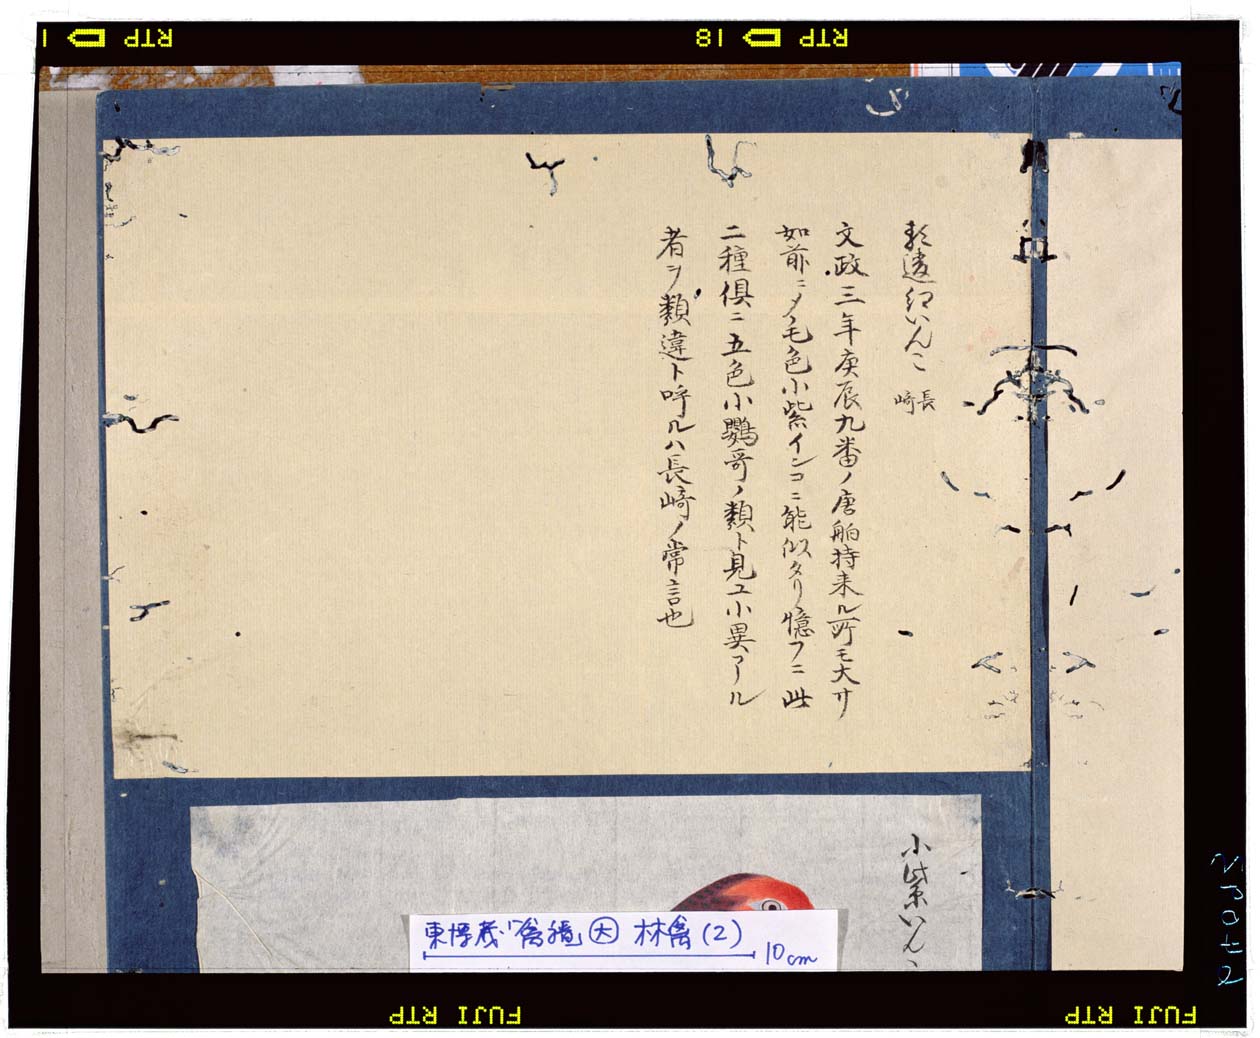 類違紅いんこ 長崎
文政三年庚辰九番ノ唐舶持来ル所モ大サ
如前ニメ毛色小紫インコニ能似タリ憶フニ此
二種倶ニ五色小鸚哥ノ類ト見ユ小異アール
者ヲ類違ト呼ルハ長崎ノ常言也
小紫いんこ
東博蔵「禽譜」大 林禽(2)
10cm
RTP
18
RTP
FUJI RTP
FUJI RTP